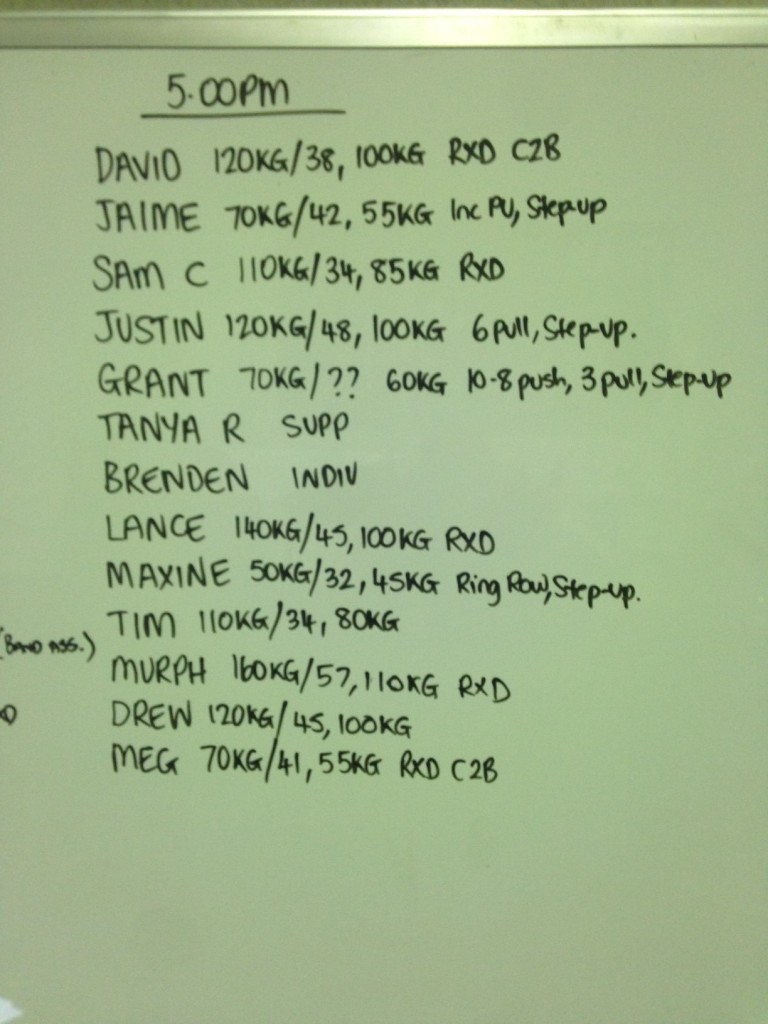 5.00PM
DAVID 120KG/38, 100KG RXD C2B
JAIME 70KG/42, 55KG Inc PU, Step-up
SAM C 110KG/34, 85KG RXD
JUSTIN 120KG/48, 100KG 6 pull, Step-up.
GRANT 70KG/?? 60KG 10-8 push, 3 pull, Step-up
TANYA R SUPP
BRENDEN INDIV
LANCE 140KG/45, 100KG RXD
MAXINE 50KG/32, 45KG Ring Row, Step-up.
TIM 110KG/34, 80KG
(BAND ASS.)
MURPH 160KG/57, 110KG RXD
DREW 120KG/45, 100KG
MEG 70KG/41, 55KG RXD C2B